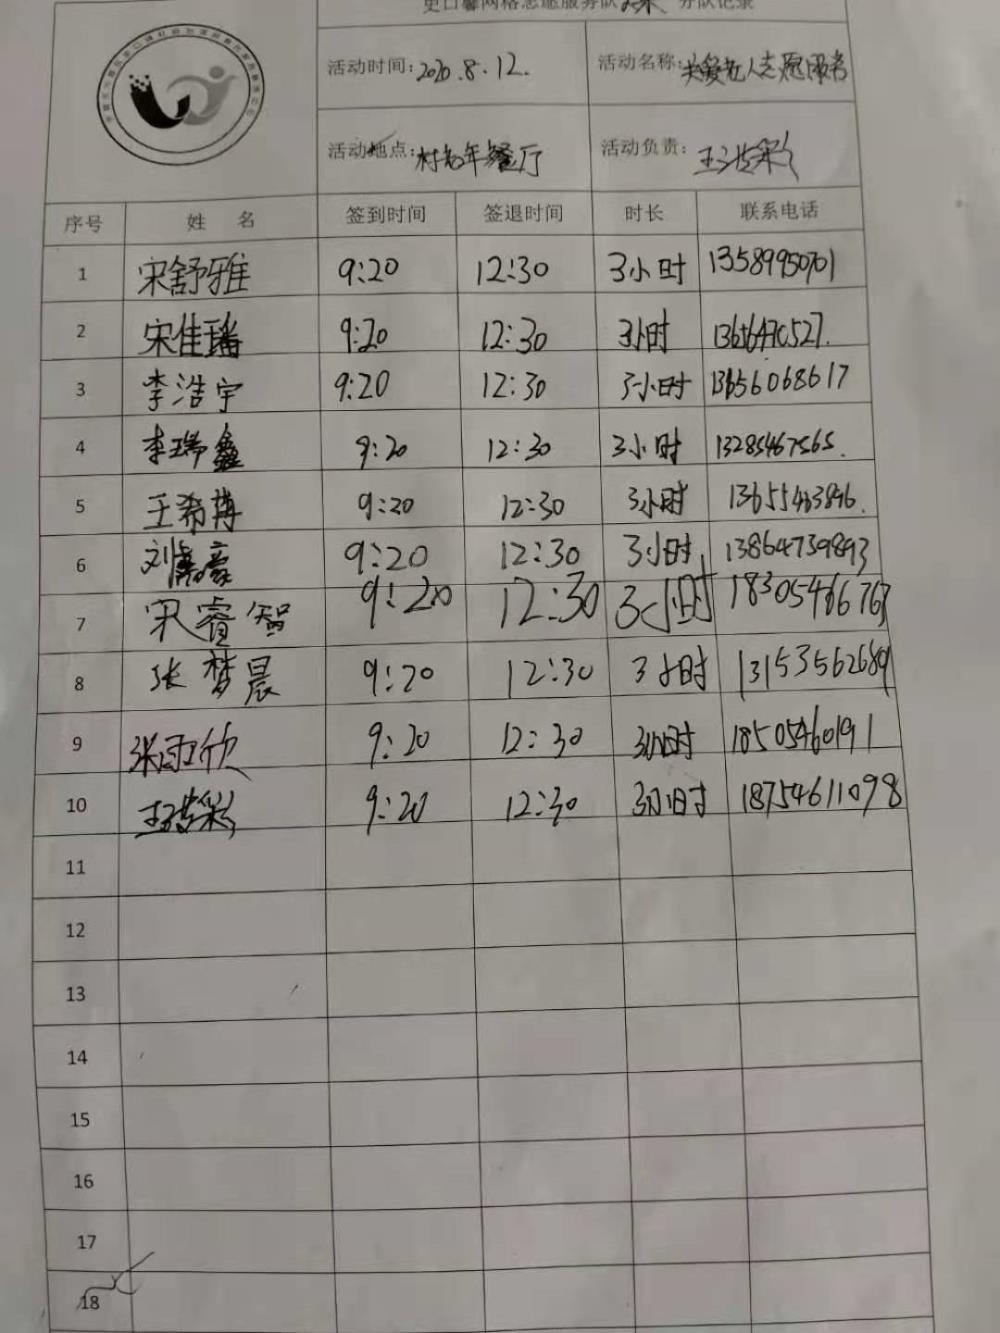 史口馨网格志愿服务队 分队记录
活动时间: 2020.8.12. 活动名称: 关爱老人志愿服务
活动地点: 村老年餐厅 活动负责:
序号 姓 名 签到时间 签退时间 时长 联系电话
1 宋舒雅 9:20 12:30 3小时 13589950701
2 宋佳瑶 9:20 12:30 3小时 13656470527.
3 李浩宇 9:20 12:30 3小时 13656068617
4 李瑞鑫 9:20 12:30 3小时 13285467565.
5 王希博 9:20 12:30 3小时 13655463896.
6 9:20 12:30 3小时 13864739893
7 宋睿智 9:20 12:30 3小时 18305466763
8 张梦晨 9:20 12:30 3小时 13153562689
9 张雨欣 9:20 12:30 3小时 18505460191
10 9:20 12:30 3小时 18754611098
11
12
13
14
15
16
17
18